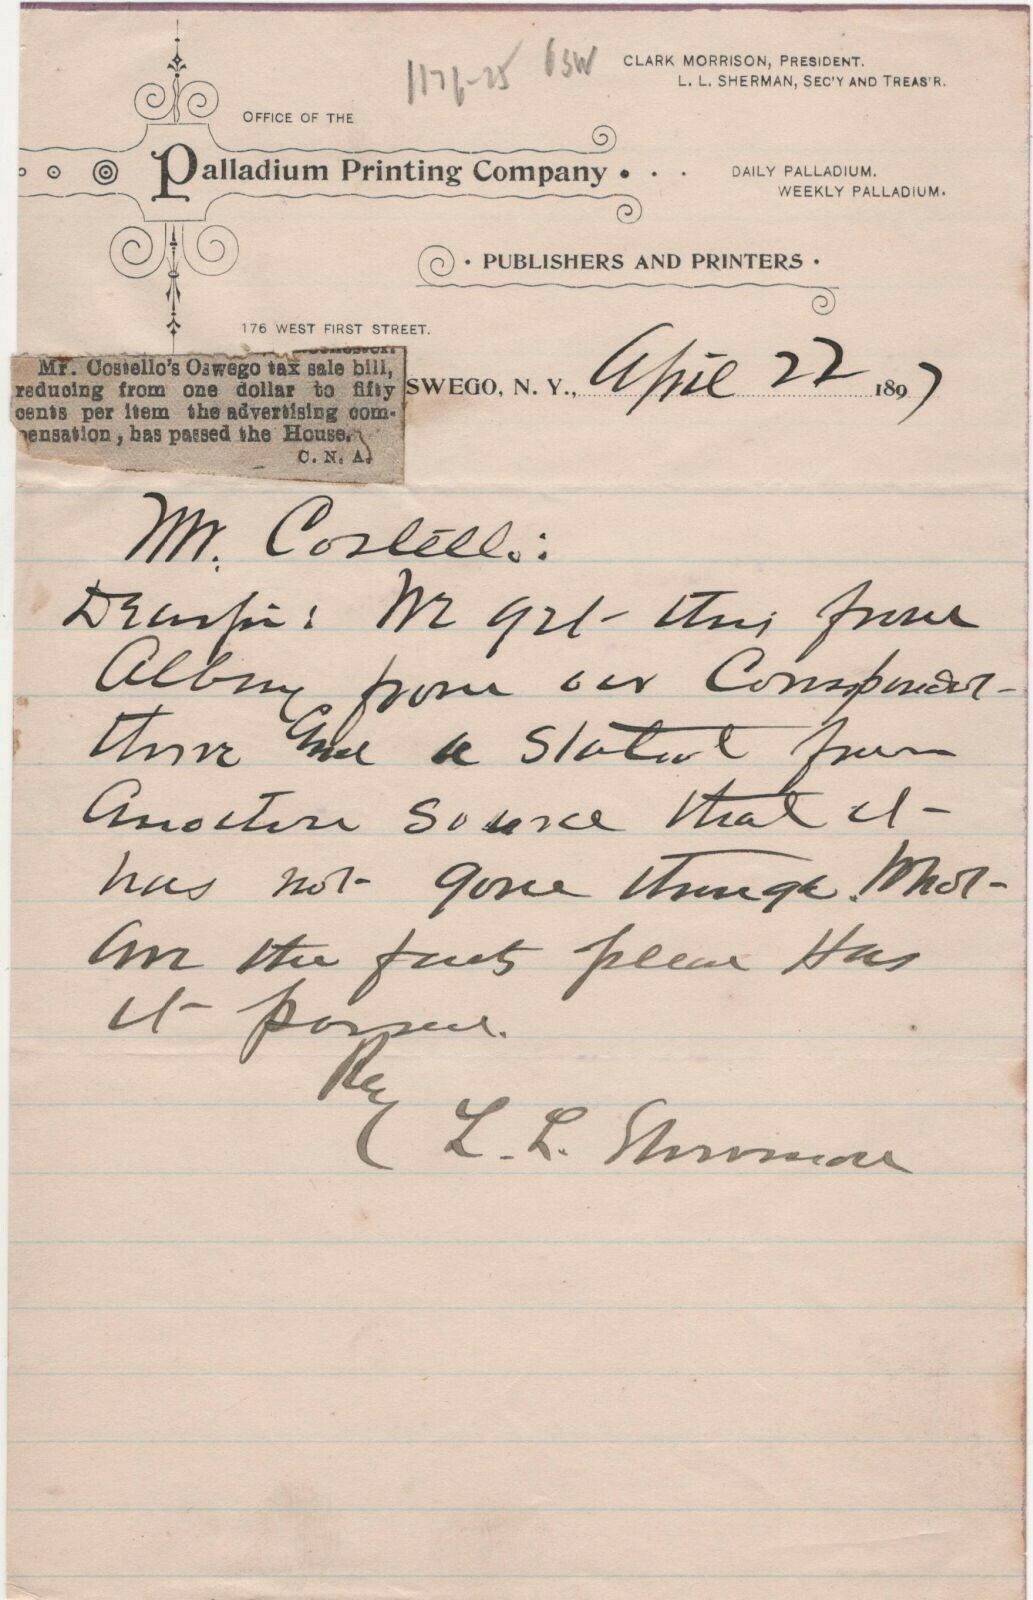 1176-25 BSW
CLARK MORRISON, PRESIDENT.
L. L. SHERMAN, SEC'Y AND TREAS'R.
OFFICE OF THE
Palladium Printing Company
DAILY PALLADIUM.
WEEKLY PALLADIUM.
· PUBLISHERS AND PRINTERS ·
176 WEST FIRST STREET.
SWEGO, N. Y., April 22 1897
Mr. Costello's Oswego tax sale bill,
reducing from one dollar to fifty
cents per item the advertising com-
pensation, has passed the House.
C. N. A.
Mr. Costello:
Dear sir: We get this from
Albany from our Correspondent
there and a statmt from
Another source that it
has not gone through. What
are the facts please Has
it passed.
Rey
L. L. Sherman